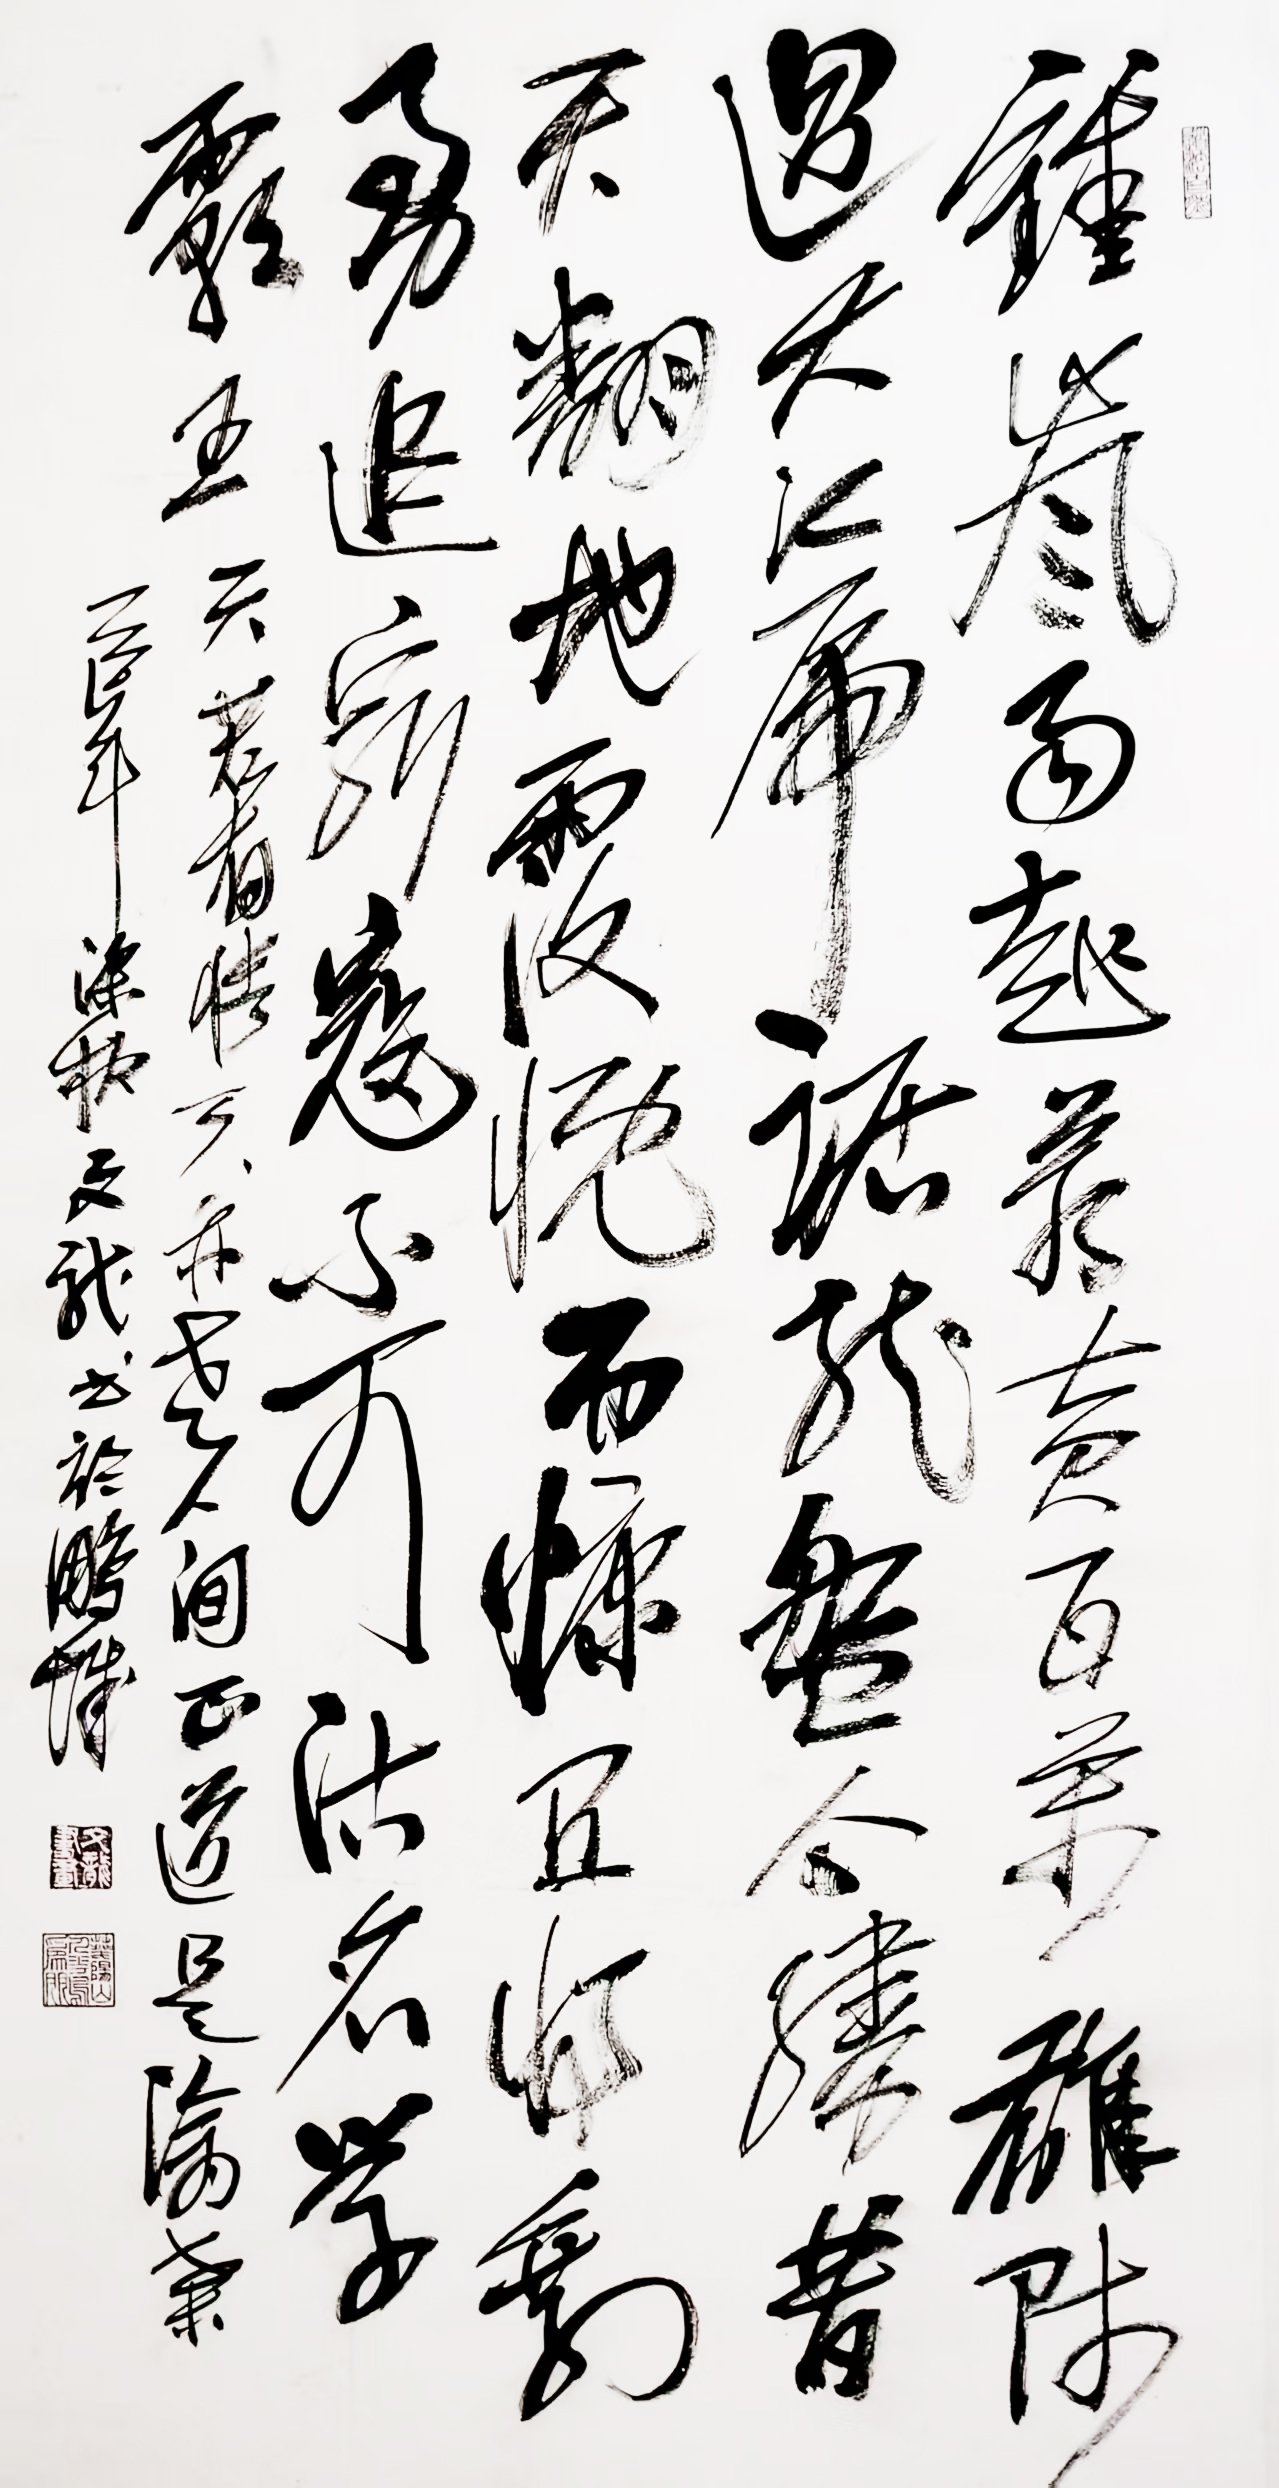 鍾山風雨起蒼黃百萬雄師
過大江虎踞龍盤今勝昔
天翻地覆慨而慷且將剩
勇追窮寇不可沽名學
霸王天若有情天亦老人間正道是滄桑
壬辰年深秋文龍書於鵬城
文龍書畫